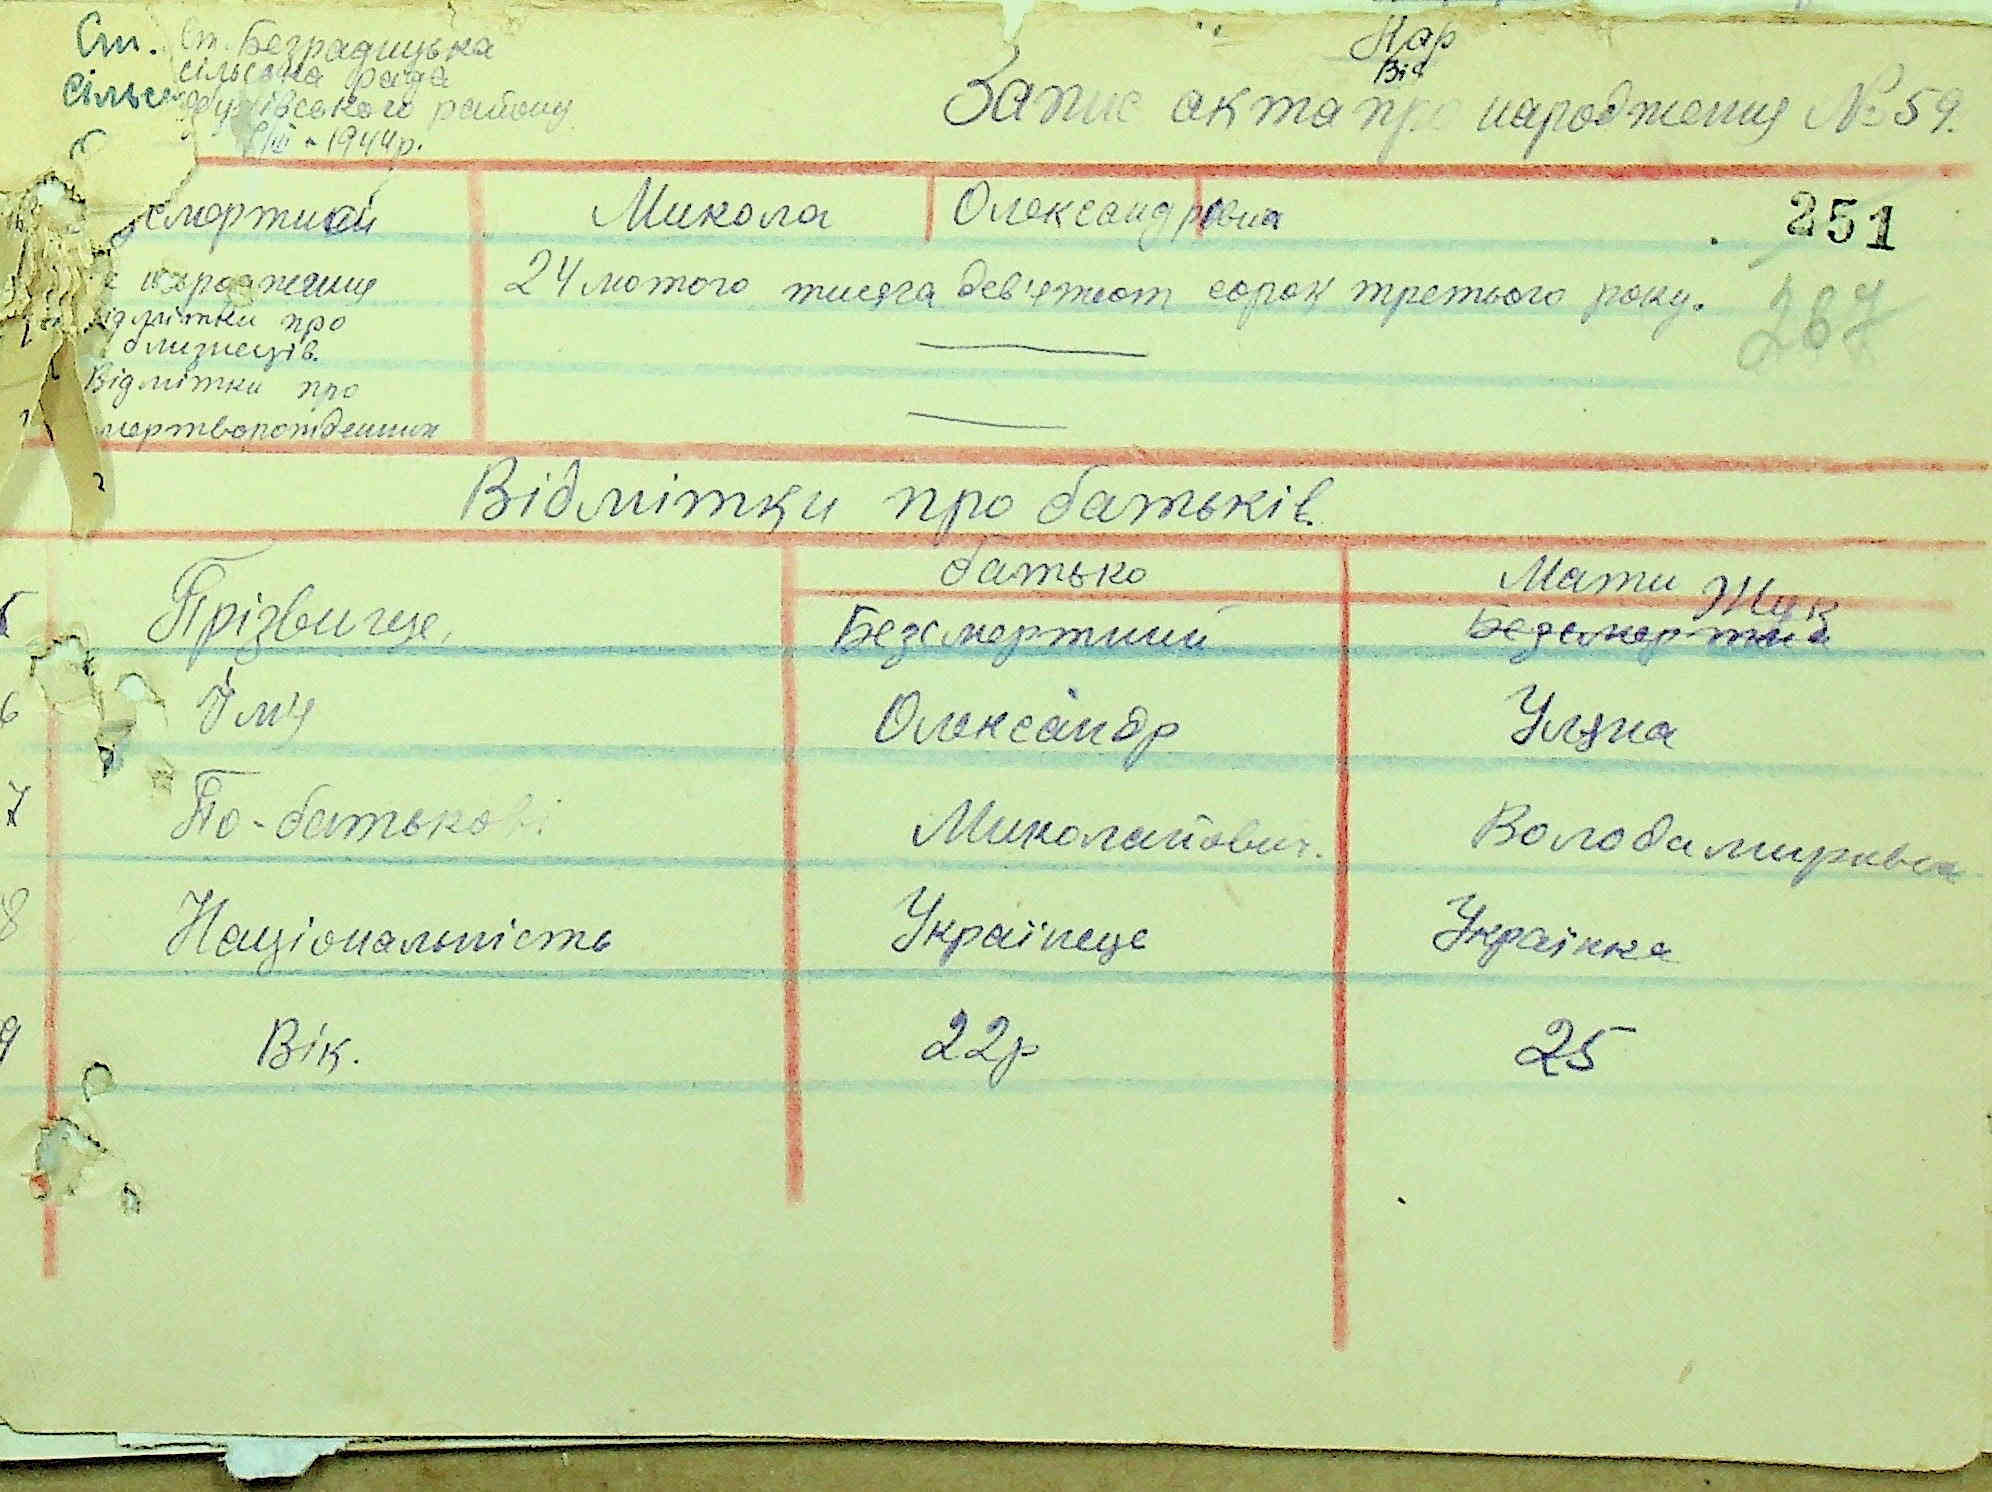 Ст.
сільсь
Ст. Безрадицька
сільська рада
Обухівського району
1944р.
Нар
Від
Запис акта про народження №59.
смертний Микола Олександрович
251
народження 24 лютого тисяча дев'ятсот сорок третього року.
267
ідмітки про
близнеців.
Відмітки про
мертвонародженних
Відмітки про батьків.
батько Мати Жук
5 Прізвище. Безсмертний Безсмертна
6 Ім'я Олександр Уляна
7 По-батькові Миколайович. Володамирівна
8 Національність Українець Українка
9 Вік. 22р 25